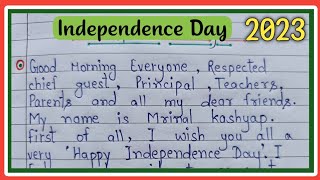 Independence Day
2023
Good Morning Everyone, Respected
chief guest, Principal, Teachers,
Parents and all my dear friends.
My name is Mrinal kashyap.
first of all, I wish you all a
very 'Happy Independence Day'. I